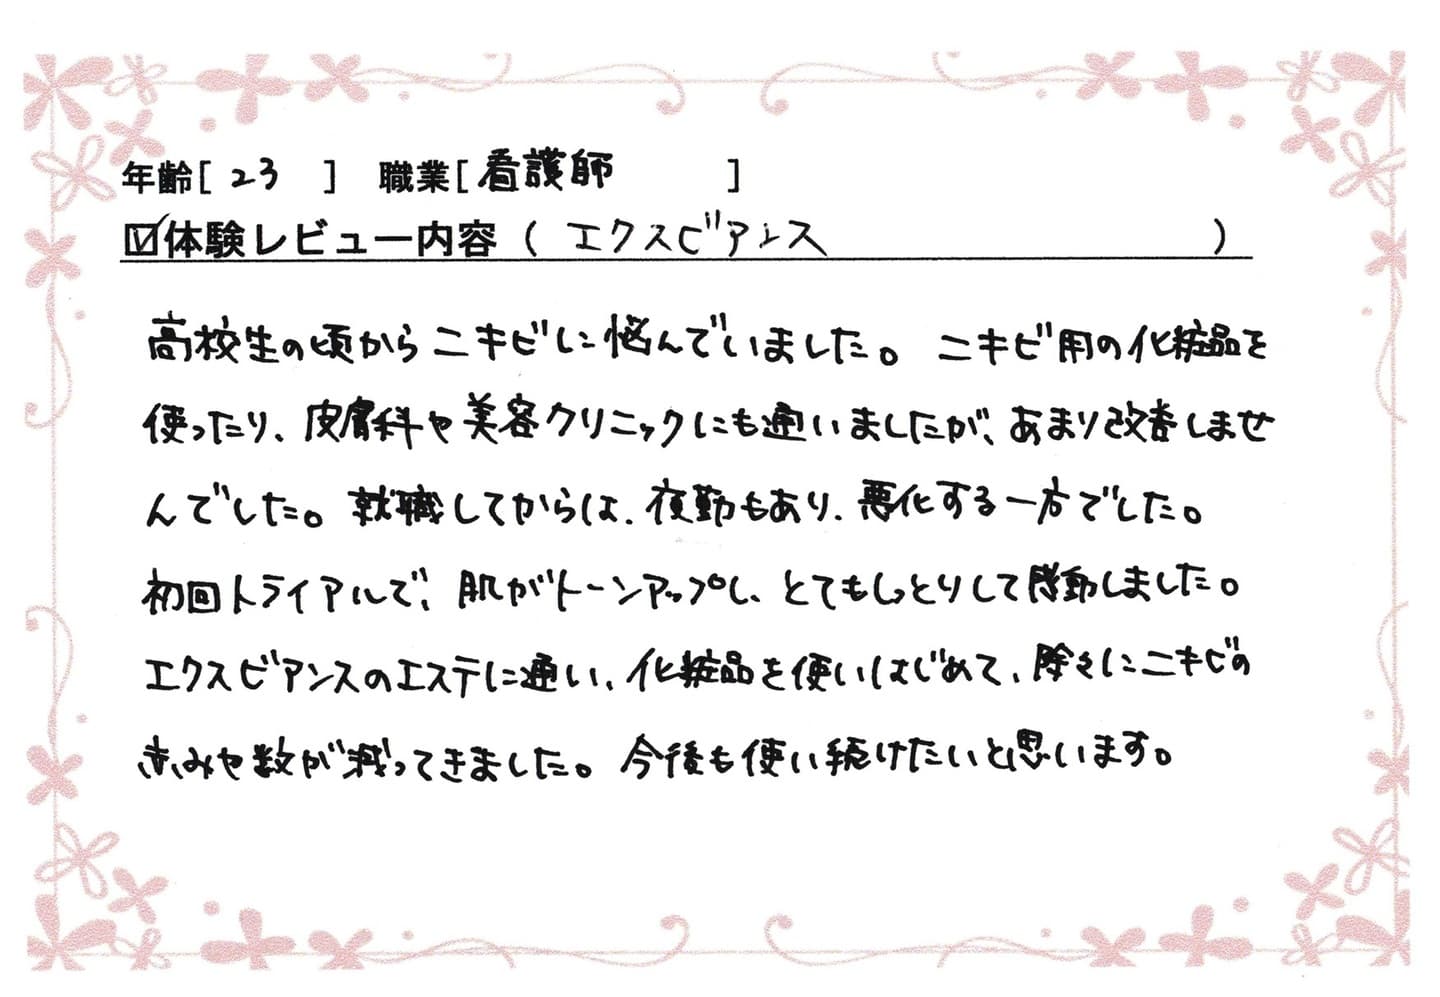 年齢[ 23 ] 職業[ 看護師 ]
☑体験レビュー内容 ( エクスビアンス )
高校生の頃からニキビに悩んでいました。ニキビ用の化粧品を
使ったり、皮膚科や美容クリニックにも通いましたが、あまり改善しませ
んでした。就職してからは、夜勤もあり、悪化する一方でした。
初回トライアルで、肌がトーンアップし、とてもしっとりして感動しました。
エクスビアンスのエステに通い、化粧品を使いはじめて、除々にニキビの
赤みや数が減ってきました。今後も使い続けたいと思います。